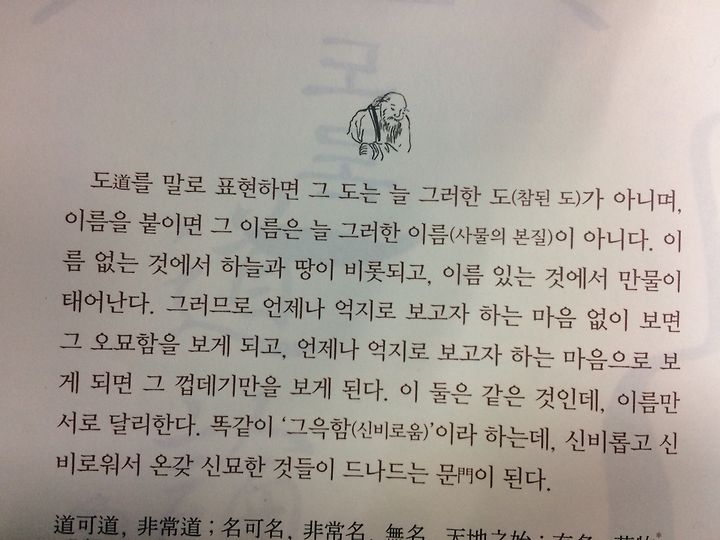 도道를 말로 표현하면 그 도는 늘 그러한 도(참된 도)가 아니며,
이름을 붙이면 그 이름은 늘 그러한 이름(사물의 본질)이 아니다. 이
름 없는 것에서 하늘과 땅이 비롯되고, 이름 있는 것에서 만물이
태어난다. 그러므로 언제나 억지로 보고자 하는 마음 없이 보면
그 오묘함을 보게 되고, 언제나 억지로 보고자 하는 마음으로 보
게 되면 그 껍데기만을 보게 된다. 이 둘은 같은 것인데, 이름만
서로 달리한다. 똑같이 ‘그윽함(신비로움)’이라 하는데, 신비롭고 신
비로워서 온갖 신묘한 것들이 드나드는 문門이 된다.
道可道, 非常道 ; 名可名, 非常名. 無名, 天地之始 ; 有名, 萬物